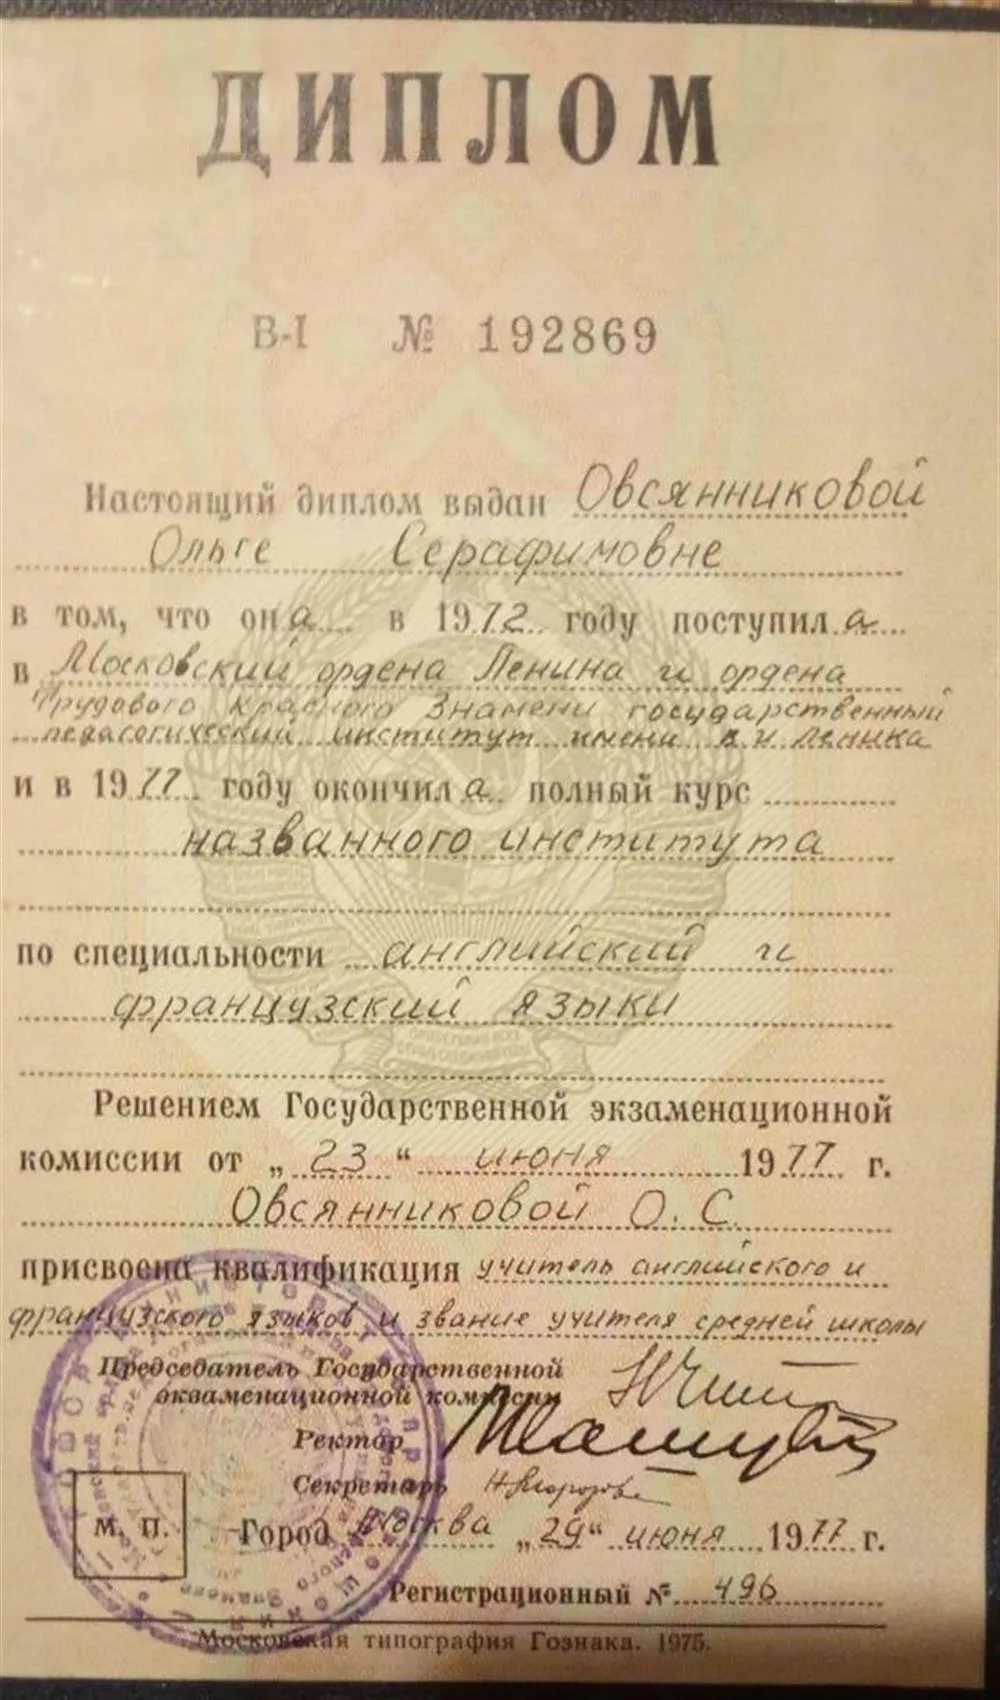 ДИПЛОМ
В-I № 192869
Настоящий диплом выдан Овсянниковой
Ольге Серафимовне
в том, что она в 1972 году поступила
в Московский ордена Ленина и ордена
Трудового Красного Знамени государственный
педагогический институт имени В.И Ленина
и в 1977 году окончила полный курс
названного института
по специальности английский и
французский языки
Решением Государственной экзаменационной
комиссии от „23“ июня 1977 г.
Овсянниковой О. С.
присвоена квалификация учитель английского и
французского языков и звание учителя средней школы
Председатель Государственной
экзаменационной комиссии
Ректор
Секретарь
М. П.
Город Москва „29“ июня 1977 г.
Регистрационный № 496
Московская типография Гознака. 1975.